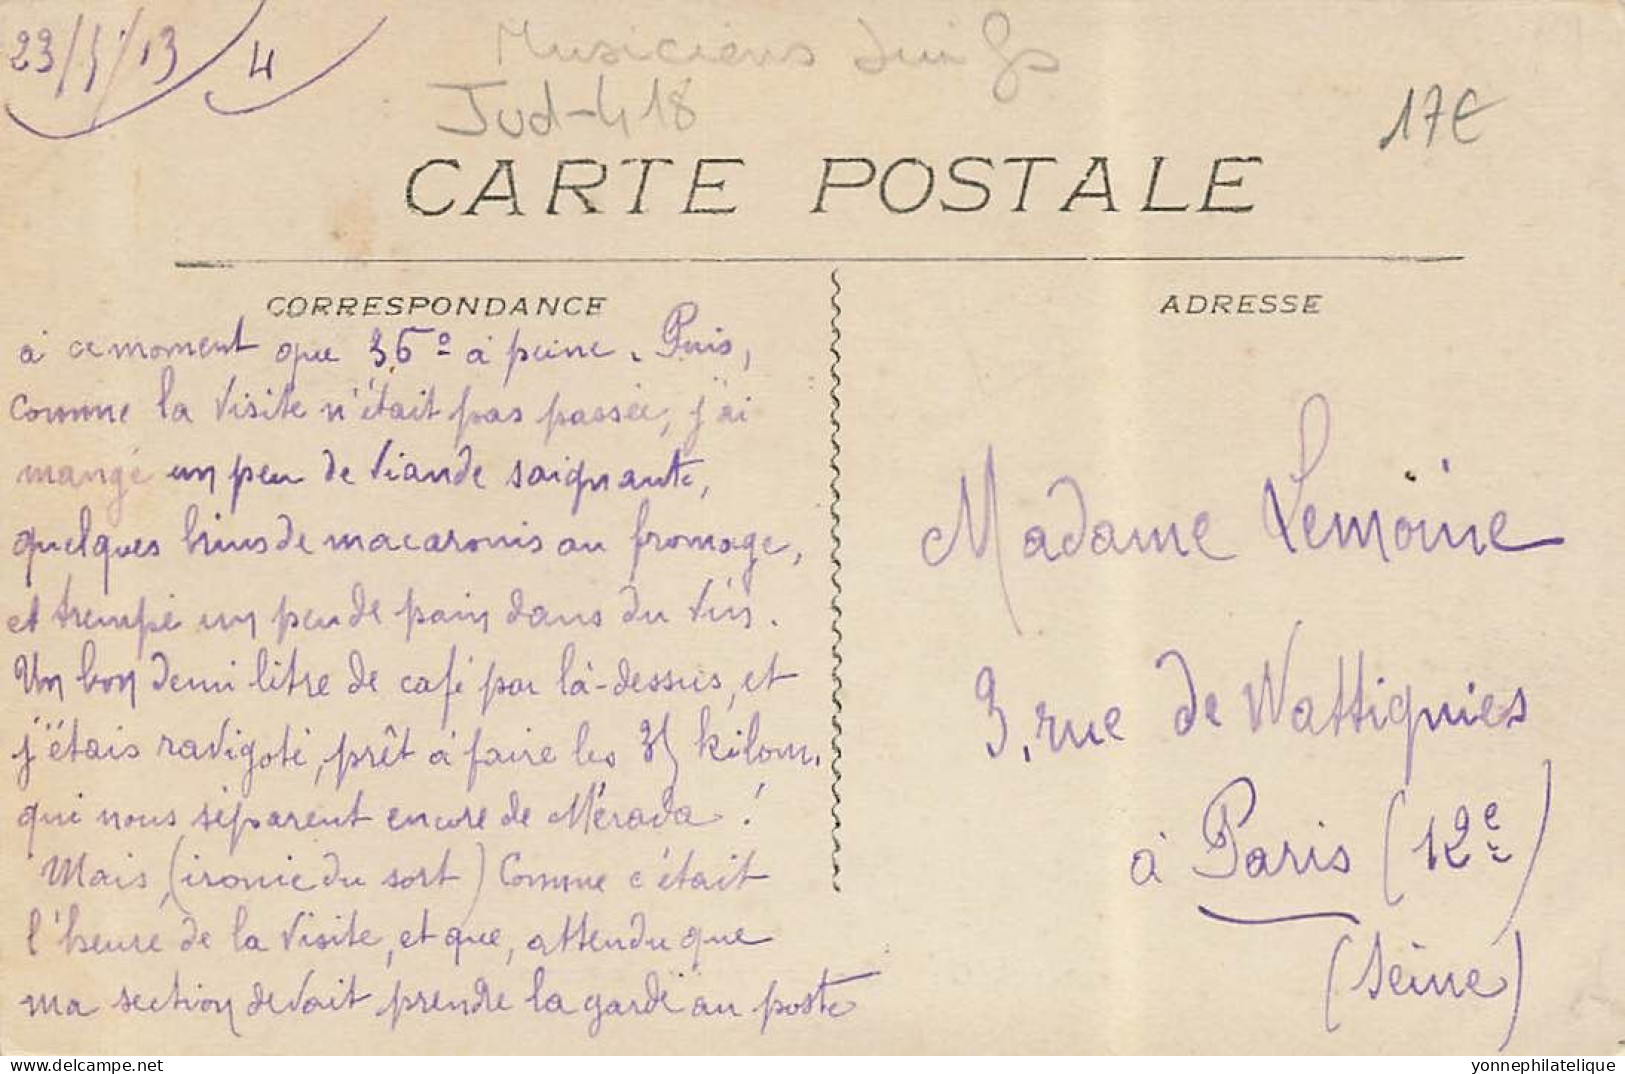 23/5/13 4
Musiciens Juifs
Jud-418
17€
CARTE POSTALE
CORRESPONDANCE
à ce moment que 36° à peine. Puis,
comme la visite n'était pas passée, j'ai
mangé un peu de viande saignante,
quelques brins de macaronis au fromage,
et trempé un peu de pain dans du vin.
Un bon demi litre de café par là-dessus, et
j'étais ravigoté, prêt à faire les 35 kilom.
qui nous séparent encore de Mérada !
Mais, (ironie du sort) comme c'était
l'heure de la visite, et que, attendu que
ma section devait prendre la garde au poste
ADRESSE
Madame Lemoine
3, rue de Wattignies
à Paris (12e)
(Seine)
delcampe.net
yonnephilatelique